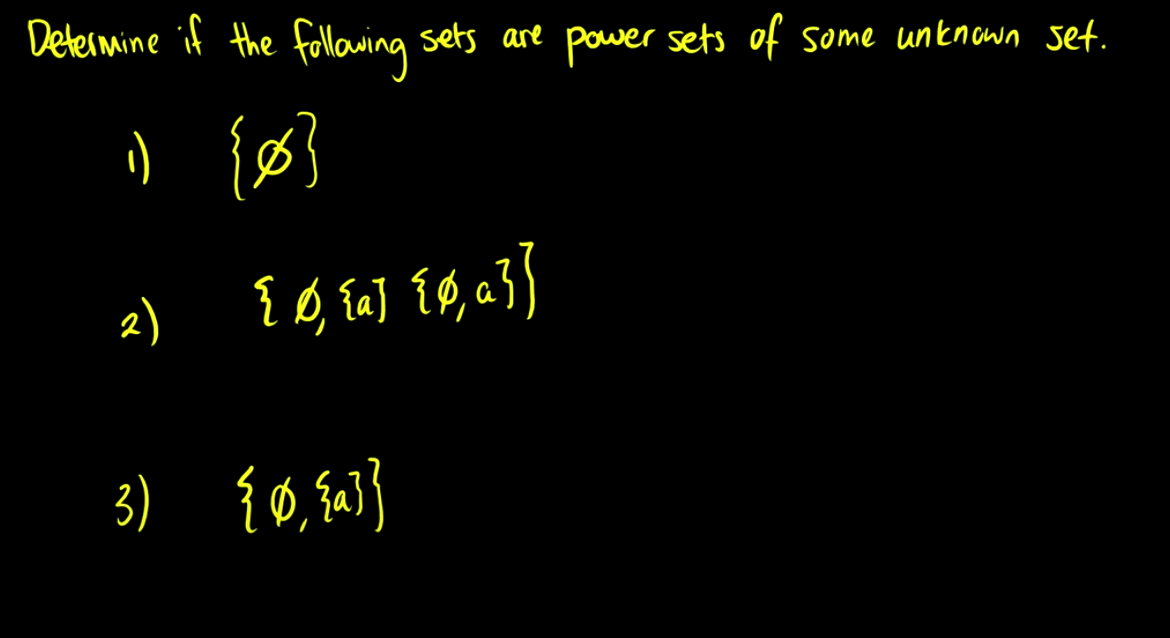 Determine if the following sets are power sets of some unknown set.
1) {∅}
2) {∅, {a} {∅, a}}
3) {∅, {a}}